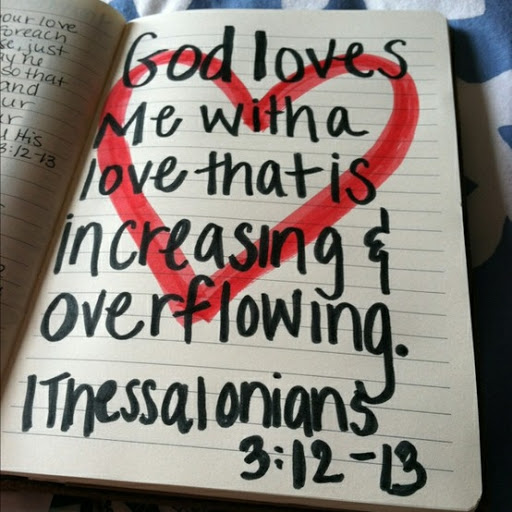 our love
se, just
so that
and
our
His
3:12-13
God loves
Me with a
love that is
increasing &
overflowing.
1 Thessalonians
3:12-13